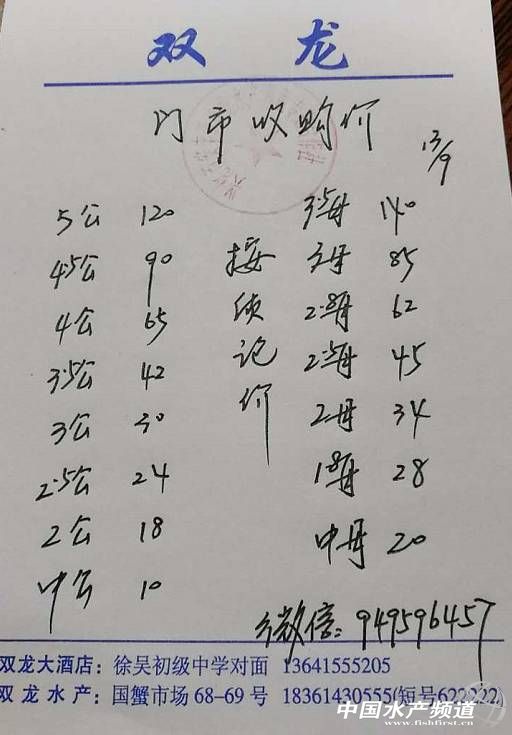 双 龙
门市收购价
13/9
5公 120
4.5公 90
4公 65
3.5公 42
3公 30
2.5公 24
2公 18
中公 10
按质论价
3.5母 140
3母 85
2.8母 62
2.5母 45
2母 34
1.8母 28
中母 20
微信: 949596457
双龙大酒店:徐吴初级中学对面 13641555205
双龙水产:国蟹市场68-69号 18361430555(短号622222)
中国水产频道
www.fishfirst.cn